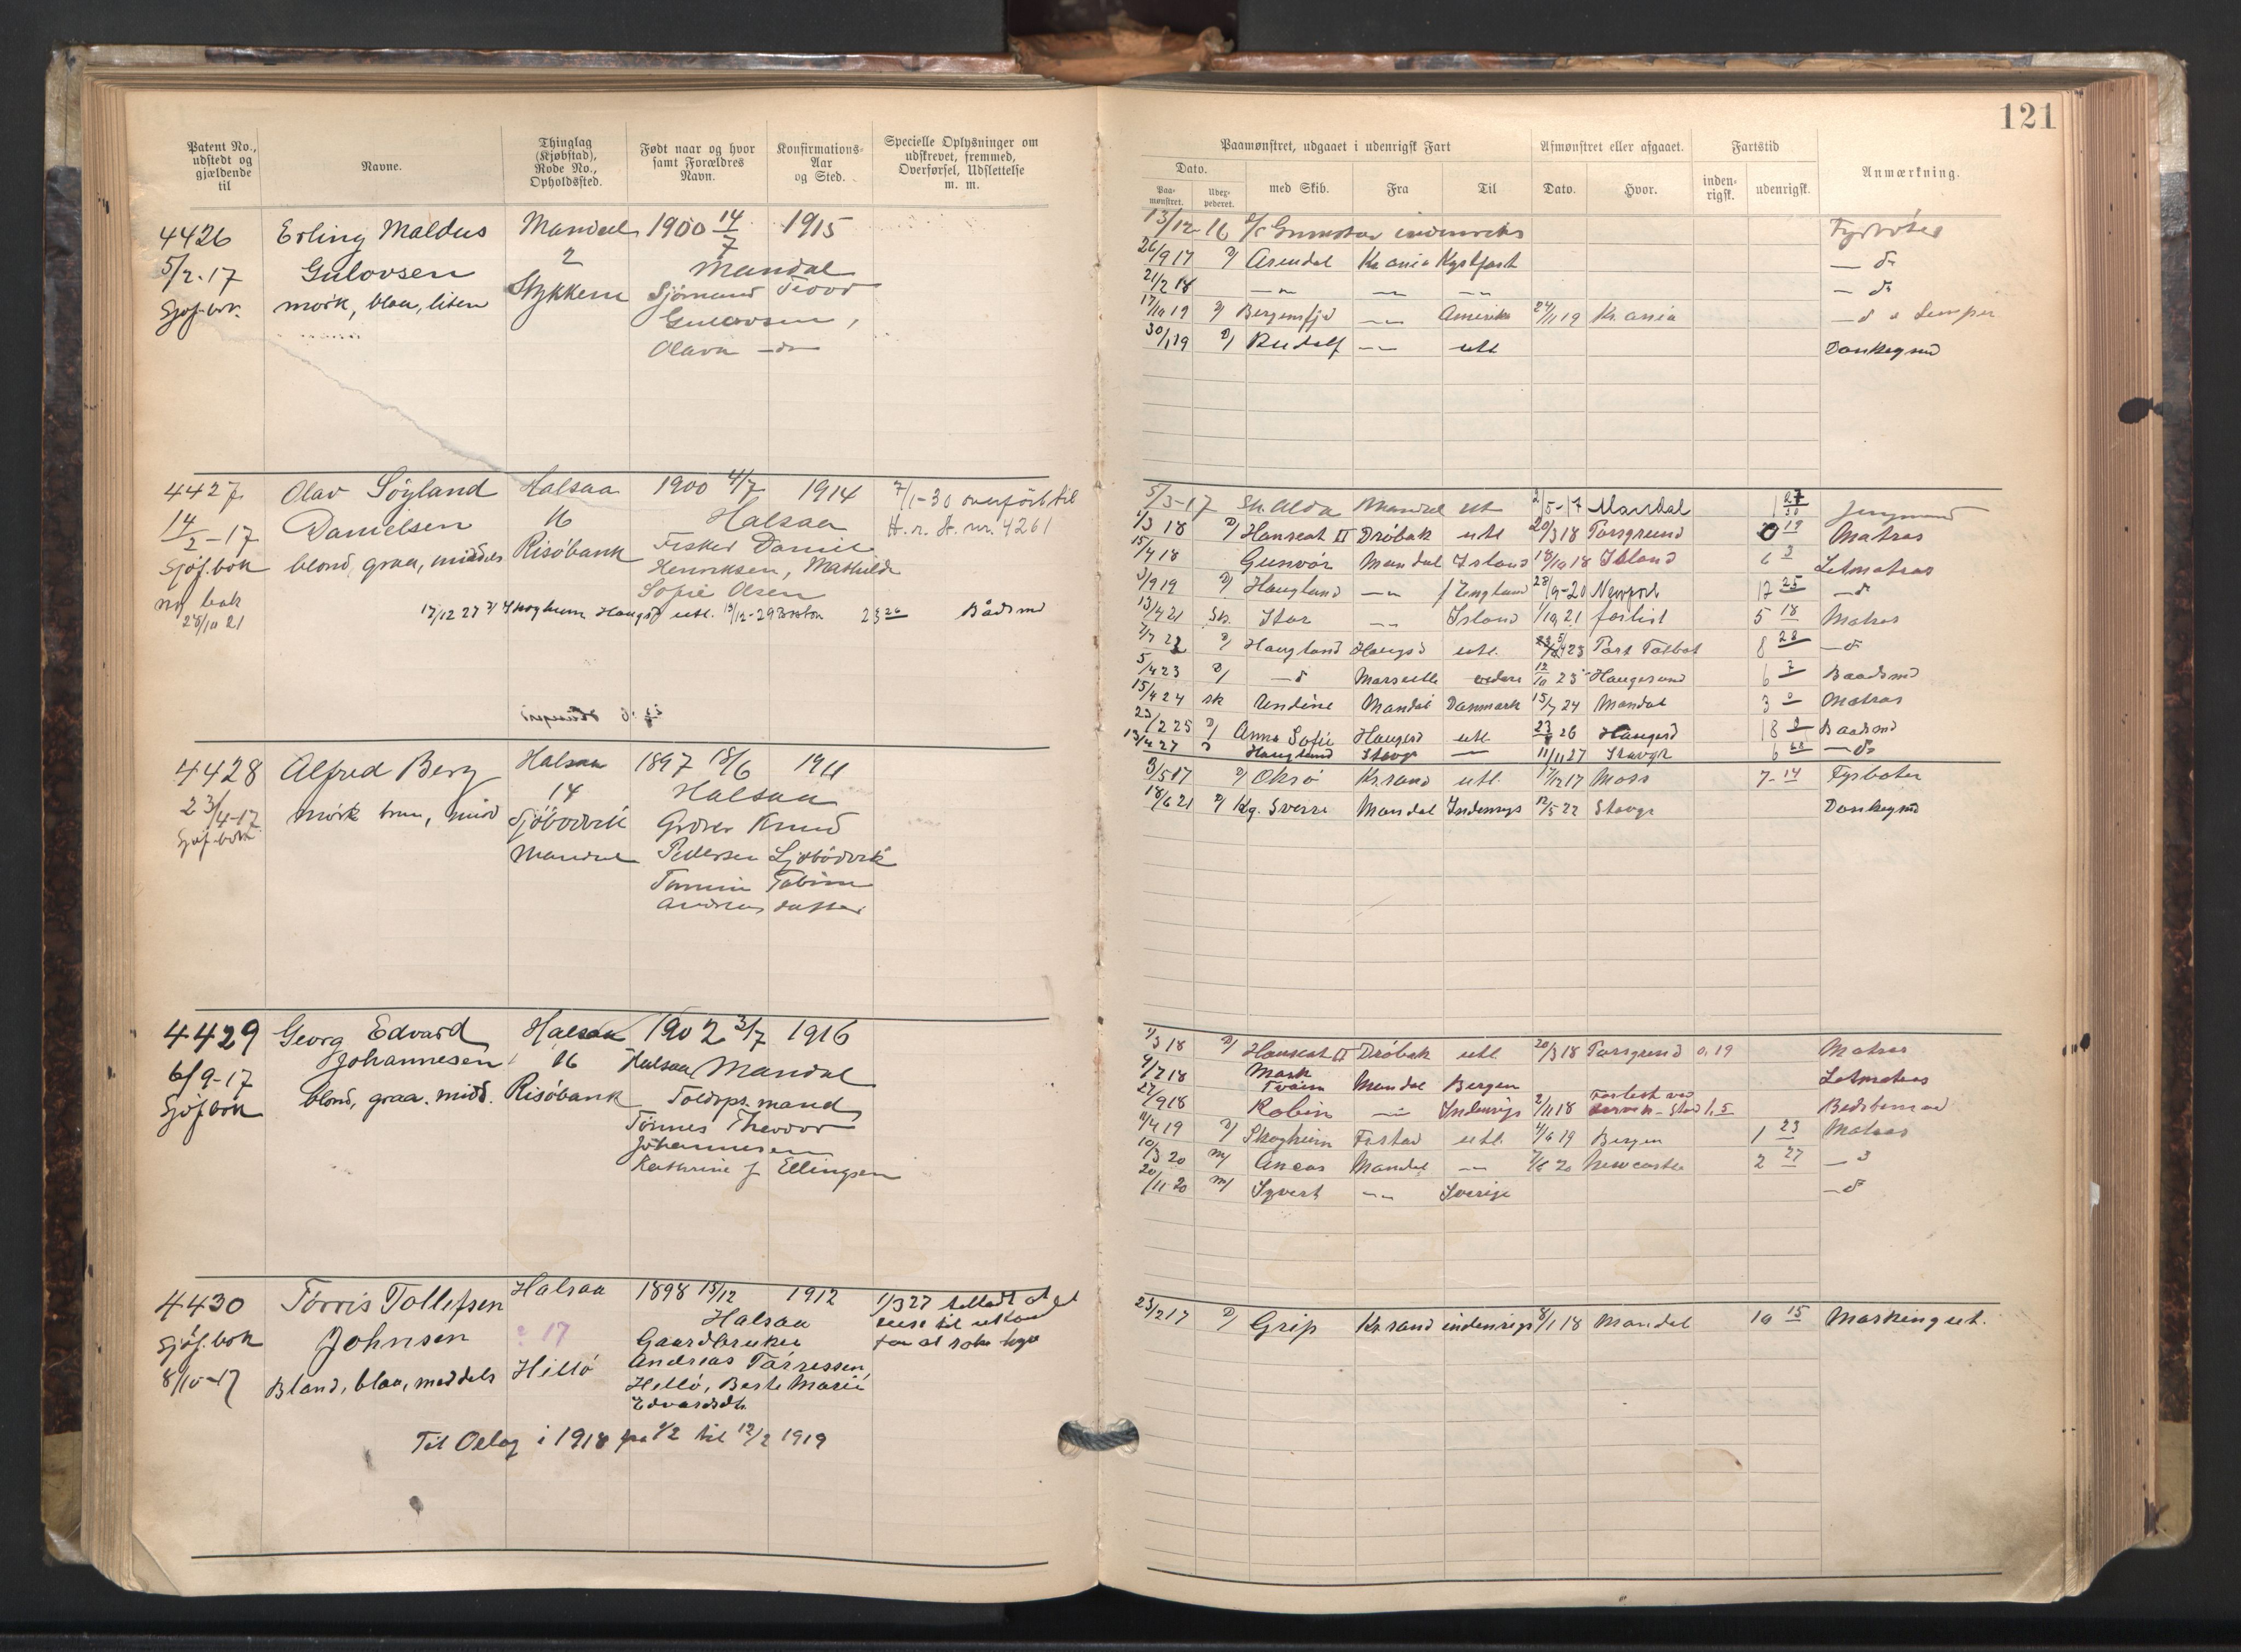 121
Patent No., udstedt og gjældende til
Navne.
Thinglag (Kjøbstad), Rode No., Opholdssted.
Født naar og hvor samt Forældres Navn.
Konfirmations-Aar og Sted.
Specielle Oplysninger om udskrevet, fremmed, Overførsel, Udslettelse m. m.
Paamønstret, udgaaet i udenrigsk Fart
Afmønstret eller afgaaet.
Fartstid
Anmærkning.
Dato.
Paa-mønstret.
med Skib.
Fra
Til
Dato.
Hvor.
inden-rigsk.
udenrigsk.
4426 Erling Maldus Mandal 1900 14/7 1915
5/2-17 Gulovsen 2 Mandal
Sjøf.bok mørk, blaa, liten Sjømand
Gulovsen,
13/12-16 indenriks Fyrbøter
26/9 17 D/ Arendal Kr.ania Kystfart — d
21/2 18 — — — — d
17/10 19 D/ Bergensfjd — Amerika 24/11 19 Kr.ania — d
D/ Rudolf — utl Donkeymd
4427 Olav Søyland Halsaa 1900 4/7 1914 7/1-30 overført til
14/2-17 Danielsen 16 Halsaa H.r. A. nr. 4261
Sjøf.bok blond, graa, middels Risøbank Fisker Daniel
Henriksen, Mathilde
Sofie Olsen
ny bok 28/10 21
17/12 27 D/ Skogheim Haugsd utl. Boston Bådsmd
5/3-17 Sk. Alda Mandal utl 2/5-17 Mandal 1 27/30 Jungmand
1/3 18 D/ Hanseat II Drøbak utl 20/3 18 Porsgrund 0 19 Matros
15/4 18 Gunvør Mandal Island 18/10 18 Island 6 3 Letmatros
3/9 19 D/ Haugland — England 28/9-20 Newport 12 25 — d
13/4 21 Sk. Stor — Island 1/10 21 forlist 5 18 Matros
D/ Haugland Haugsd utl. Port Talbot 8 28 — d
5/4 23 D/ — d Marseille videre 12/10 23 Haugesund 6 7 Baadsmd
15/4 24 sk Undine Mandal Danmark 15/7 24 Mandal 3 0 Matros
23/2 25 D/ Anna Sofie Haugesd utl 26 Haugesd 18 Baadsmd
13/4 27 D Haugland Stavgr — 11/11 27 Stavgr 6 — d
4428 Alfred Berg Halsaa 1897 18/6 1911
23/4-17 mørk brun, midd 14 Halsaa
Sjøf.bok Sjøbodvik Knud
Mandal Pedersen Sjøbodvik
Tobine
Andreasdatter
3/5 17 D/ Oksø Kr.sand utl. 17/12 17 Moss 7-14 Fyrbøter
18/6 21 D/ Kg. Sverre Mandal Indenrigs 12/5 22 Stavgr Donkeymd
4429 Georg Edvard Halsaa 1902 3/7 1916
Johannesen 16 Halsaa Mandal
6/9-17 blond, graa. midd. Risøbank Toldops.mand
Sjøfbok Tønnes Theodor
Johannesen
Kathrine f Ellingsen
1/3 18 D/ Hanseat II Drøbak utl 20/3 18 Porsgrund 0.19 Matros
4/7 18 Mark Twain Mandal Bergen Letmatros
27/9 18 Robin — Indenrigs 2/11 18 Forlist ved Stad 1.5 Bedstemand
11/4 19 D/ Skogheim Fr.stad utl. 4/6 19 Bergen 1 23 Matros
10/3 20 M/ Aneas Mandal — 7/6 20 Newcastle 2 27 — d
20/11-20 M/ Syvert — Sverige — d
4430 Tørris Tollefsen Halsaa 1898 15/12 1912 1/3 27 tilladt at
Johnsen 17 Halsaa reise til utland
Sjøf.bok Gaardbruker for at søke hyre
8/10-17 Blond, blaa, middels Hillø Andreas Tørressen,
Hillø, Berte Marie
Edvardsdtr.
Til Orlog i 1918 fra 1/2 til 12/2 1919
23/2 17 D/ Grip Kr.sand indenrigs 8/1 18 Mandal 10 15 Maskinqut.